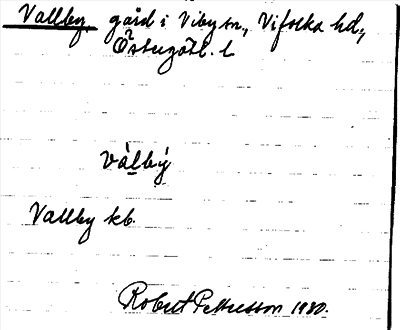 Vallby, gård i Viby sn, Vifolka hd,
Östergötl. l
vàlbý
Vallby kb.
Robert Pettersson 1930.